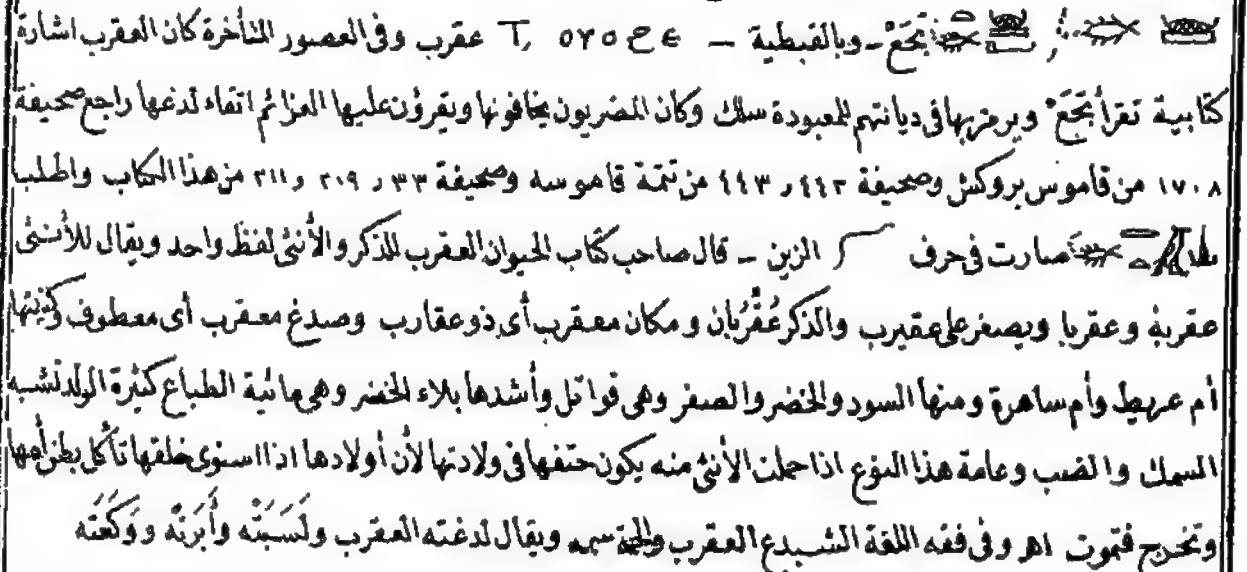 بَحَعْ - وبالقبطية - عقرب وفى العصور المتأخرة كان العقرب اشارة
كتابية تقرأ بَحَعْ ويرمز بها فى ديانتهم للمعبودة سلك وكان المصريون يخافونها ويقرؤن عليها العزائم اتقاء لدغها راجع صحيفة
١٧٠٨ من قاموس بروكش وصحيفة ٤٤٢ و ٤٤٣ من تتمة قاموسه وصحيفة ٣٣ و ٢٠٩ و ٢١١ من هذا الكتاب واطلب
صارت فى حرف الزين - قال صاحب كتاب الحيوان العقرب للذكر والأنثى لفظ واحد ويقال للأنثى
عقربة وعقربا ويصغر على عقيرب والذكر عُقْرُبان ومكان معقرب أى ذو عقارب وصدغ معقرب أى معطوف وكنيتها
أم عريط وأم ساهرة ومنها السود والخضر والصفر وهى قواتل وأشدها بلاء الخضر وهى مائية الطباع كثيرة الولد تشبه
السمك والضب وعامة هذا النوع اذا حملت الأنثى منه يكون حتفها فى ولادتها لأن أولادها اذا استوى خلقها تأكل بطن أمها
وتخرج فتموت اهـ وفى فقه اللغة الشبدع العقرب والحمة سمه ويقال لدغته العقرب ولَسَبَتْه وأَبَرَتْه ووَكَعَتْه